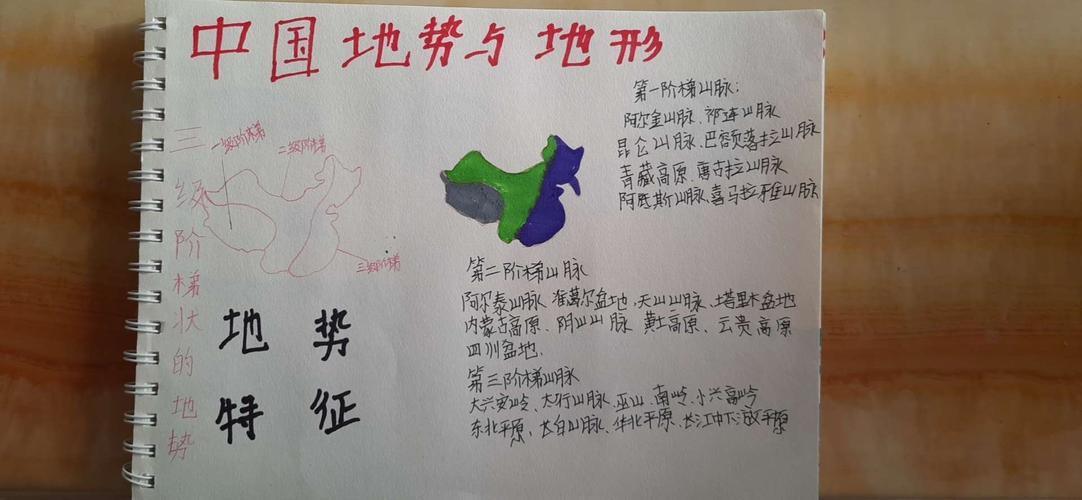 中国地势与地形
三级阶梯状的地势
一级阶梯
二级阶梯
三级阶梯
地势
特征
第一阶梯山脉:
阿尔金山脉、祁连山脉
昆仑山脉、巴容颜落拉山脉
青藏高原、唐古拉山脉
阿底斯山脉、喜马拉雅山脉
第二阶梯山脉
阿尔泰山脉 准葛尔盆地,天山山脉、塔里木盆地
内蒙古高原、阴山山脉 黄土高原、云贵高原
四川盆地、
第三阶梯山脉
大兴安岭、太行山脉、巫山、南岭、小兴高岭
东北平原、长白山脉、华北平原、长江中下游平原